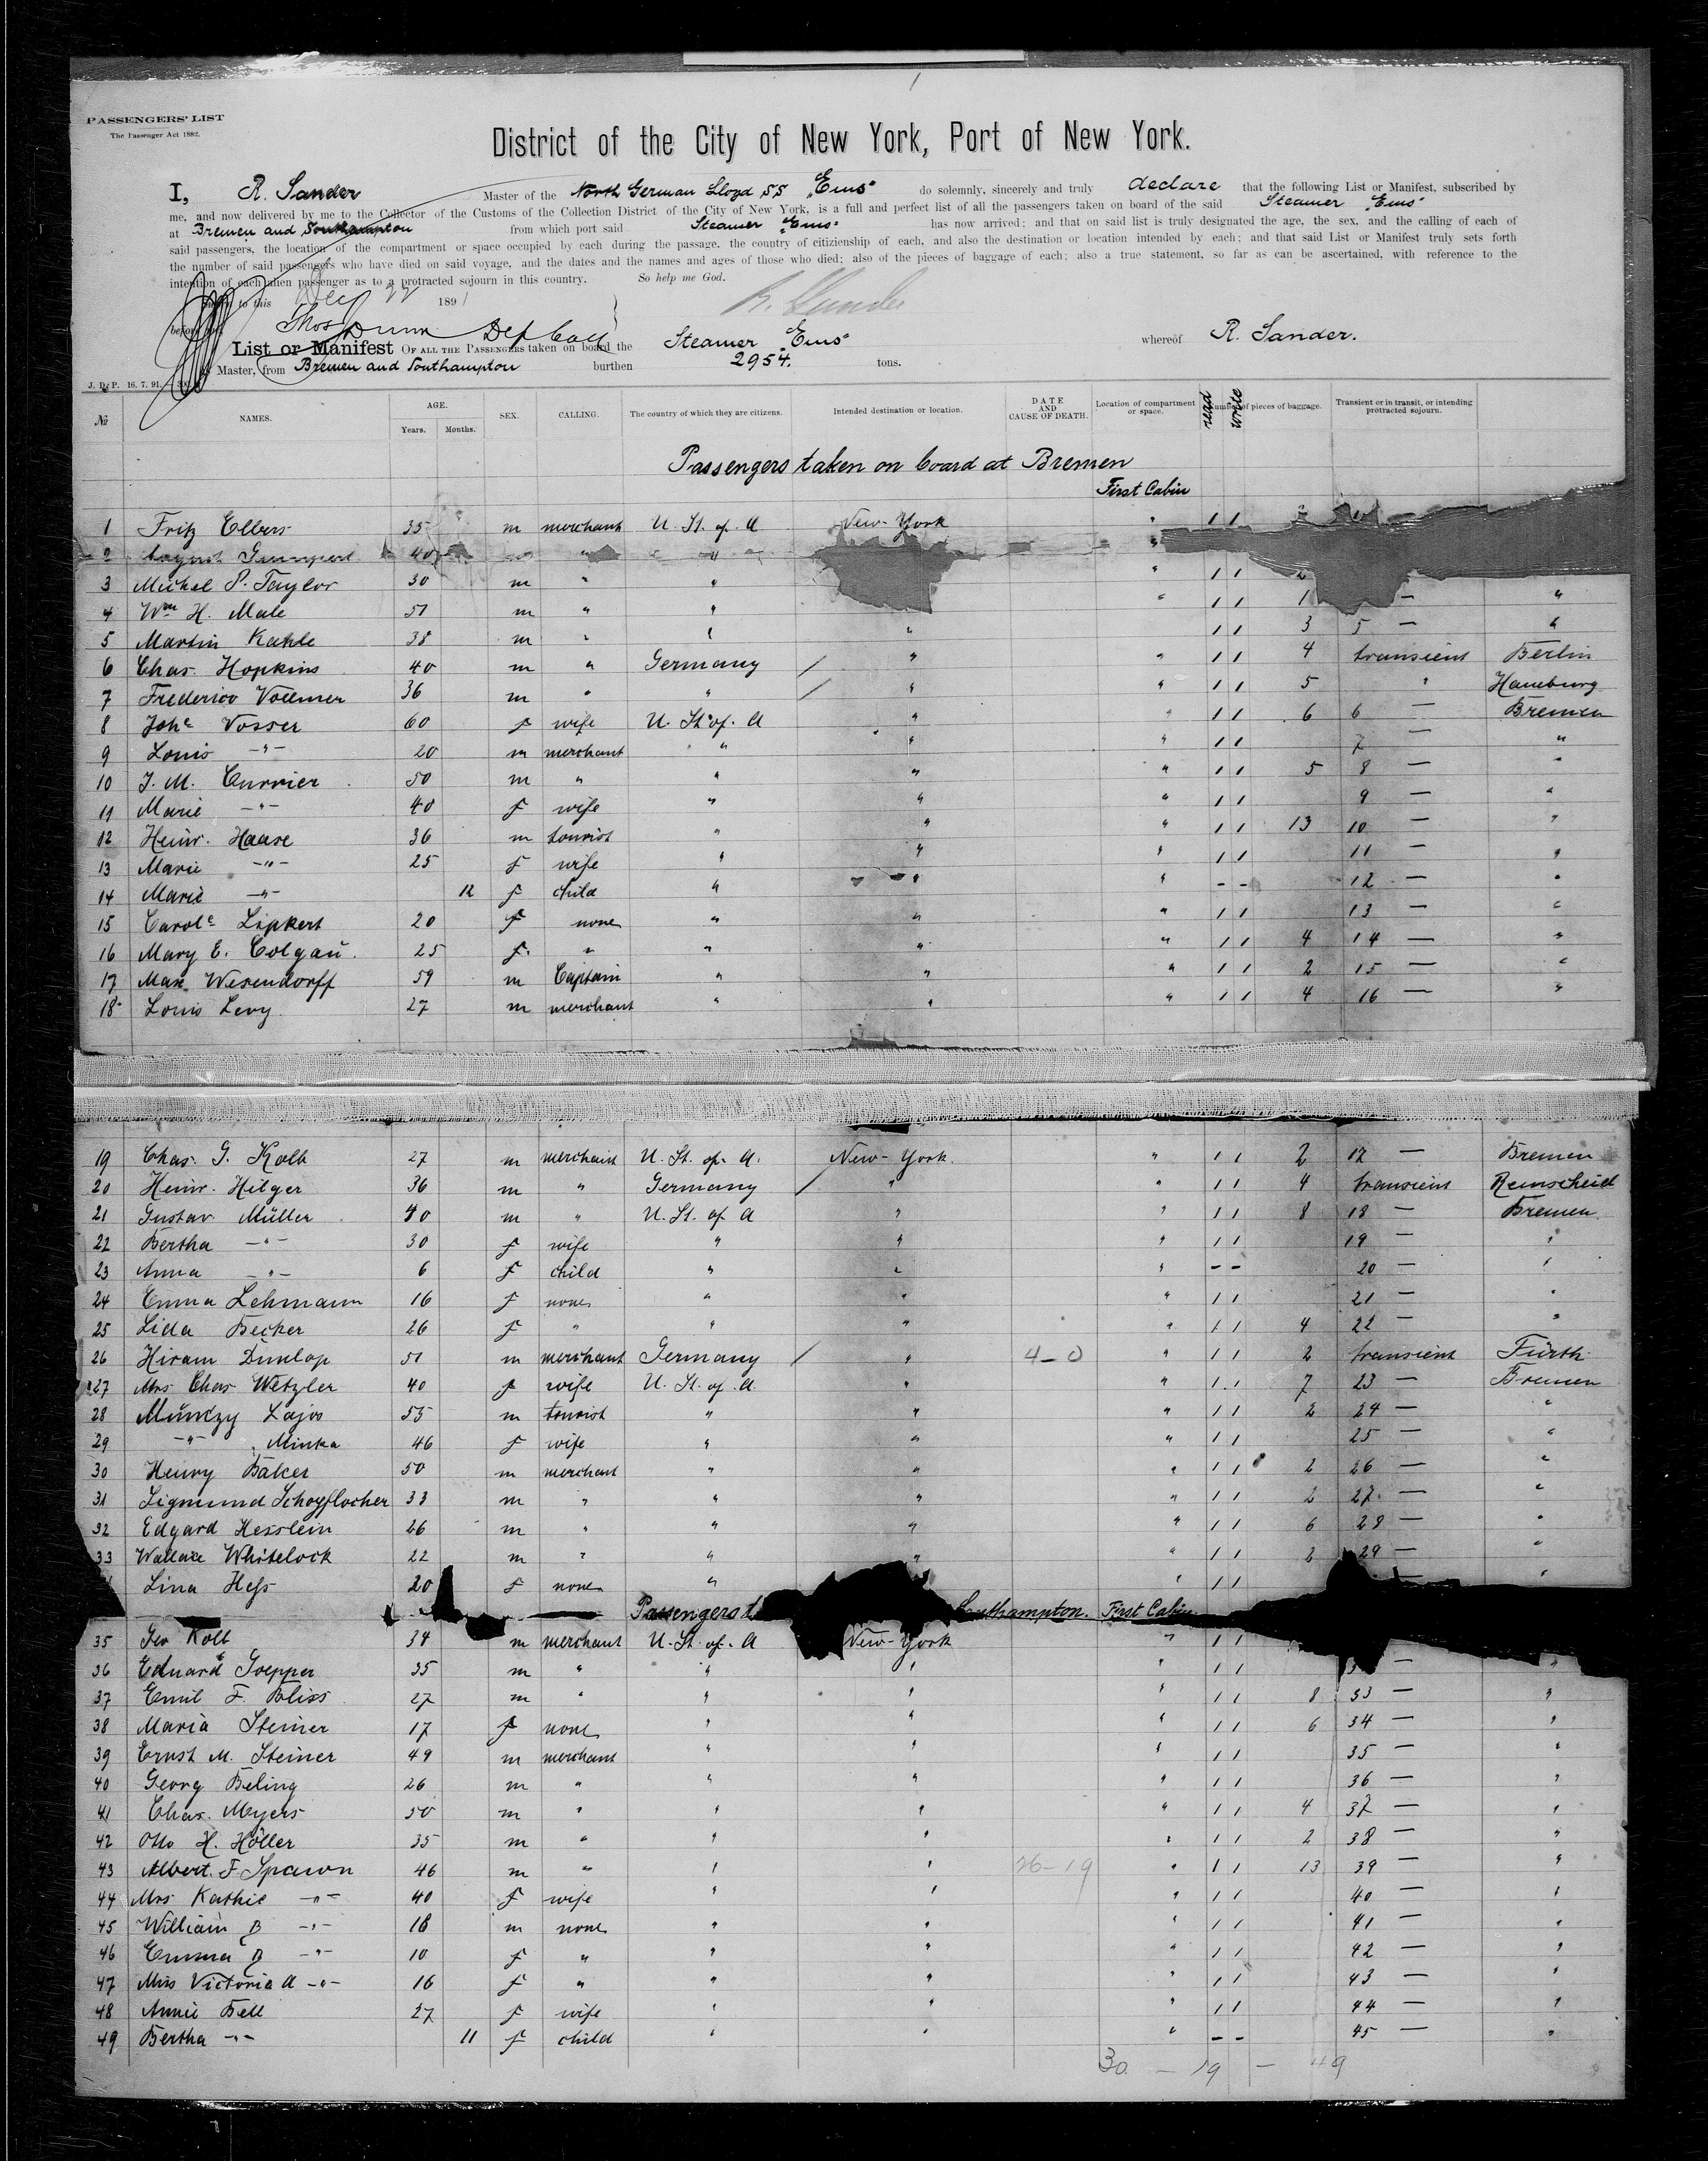 1
PASSENGERS' LIST
The Passenger Act 1882.
District of the City of New York, Port of New York.
I, R. Sander Master of the North German Lloyd SS „Ems" do solemnly, sincerely and truly declare that the following List or Manifest, subscribed by
me, and now delivered by me to the Collector of the Customs of the Collection District of the City of New York, is a full and perfect list of all the passengers taken on board of the said Steamer „Ems"
at Bremen and Southampton from which port said Steamer „Ems" has now arrived; and that on said list is truly designated the age, the sex, and the calling of each of
said passengers, the location of the compartment or space occupied by each during the passage, the country of citizienship of each, and also the destination or location intended by each; and that said List or Manifest truly sets forth
the number of said passengers who have died on said voyage, and the dates and the names and ages of those who died; also of the pieces of baggage of each; also a true statement, so far as can be ascertained, with reference to the
intention of each alien passenger as to a protracted sojourn in this country. So help me God.
to this 22 1891 R. Sander
before Thos Dunn Dep Coll
List or Manifest OF ALL THE PASSENGERS taken on board the Steamer „Ems" whereof R. Sander.
Master, from Bremen and Southampton burthen 2954. tons.
J. D. P. 16. 7. 91.
№ NAMES. AGE. Years. Months. SEX. CALLING. The country of which they are citizens. Intended destination or location. DATE AND CAUSE OF DEATH. Location of compartment or space. read write Number of pieces of baggage. Transient or in transit, or intending protracted sojourn.
Passengers taken on board at Bremen
First Cabin
1 Fritz Elbers 35 m merchant U. St. of. A New-York " 1 1
2 August 40 "
3 Michel P. Taylor 30 m " " " 1 1 2
4 Wm H. Male 51 m " " " 1 1 1 — "
5 Martin Kahle 38 m " " " 1 1 3 5 — "
6 Chas. Hopkins 40 m " Germany / " " 1 1 4 transient Berlin
7 Frederico Vollmer 36 m " " / " " 1 1 5 " Hamburg
8 Johe Vosser 60 f wife U. St. of. A " " 1 1 6 6 — Bremen
9 Louis -"- 20 m merchant " " " 1 1 7 — "
10 J. M. Currier 50 m " " " " 1 1 5 8 — "
11 Marie -"- 40 f wife " " " 1 1 9 — "
12 Heinr. Haase 36 m tourist " " " 1 1 13 10 — "
13 Marie -"- 25 f wife " " " 1 1 11 — "
14 Marie -"- 12 f child " " " - - 12 — "
15 Carole Lipkert 20 f none " " " 1 1 13 — "
16 Mary E. Colgan 25 f. " " " " 1 1 4 14 — "
17 Max Wesendorff 59 m Captain " " " 1 1 2 15 — "
18 Louis Levy 27 m merchant " " " 1 1 4 16 — "
19 Chas. G. Kolb 27 m merchant U. St. of. A. New-York. " 1 1 2 17 — Bremen
20 Heinr. Hilger 36 m " Germany / " " 1 1 4 transient Remscheid
21 Gustav Müller 40 m " U. St. of A " " 1 1 8 18 — Bremen
22 Bertha -"- 30 f wife " " " 1 1 19 — "
23 Anna -"- 6 f child " " " - - 20 — "
24 Emma Lehmann 16 f none " " " 1 1 21 — "
25 Lida Becker 26 f " " " " 1 1 4 22 — "
26 Hiram Dunlop 51 m merchant Germany / " 4-0 " 1 1 2 transient Fürth
27 Mrs Chas Wetzler 40 f wife U. St. of. A. " " 1 1 7 23 — Bremen
28 Lajos 55 m tourist " " " 1 1 2 24 — "
29 -"- Minka 46 f wife " " " 1 1 25 — "
30 Henry Baker 50 m merchant " " " 1 1 2 26 — "
31 Sigmund Schopflocher 33 m " " " " 1 1 2 27 — "
32 Edgard Hesslein 26 m " " " " 1 1 6 28 — "
33 Wallace Whitelock 22 m " " " " 1 1 2 29 — "
Lina Heß 20 f none " " 1 1 "
Passengers Southampton. First Cabin
35 Geo Kolb 34 m merchant U. St. of. A New-York " 1 1
36 Eduard Goepper 35 m " " " " 1 1 — "
37 Emil F. Bliss 27 m " " " " 1 1 8 33 — "
38 Maria Steiner 17 f none " " " 1 1 6 34 — "
39 Ernst M. Steiner 49 m merchant " " " 1 1 35 — "
40 Georg Beling 26 m " " " " 1 1 36 — "
41 Chas. Meyers 50 m " " " " 1 1 4 37 — "
42 Otto H. Höller 35 m " " " " 1 1 2 38 — "
43 Albert. F. Spawn 46 m " " " 26-19 " 1 1 13 39 — "
44 Mrs Kathie -"- 40 f wife " " " 1 1 40 — "
45 William B -"- 18 m none " " " 1 1 41 — "
46 Emma B -"- 10 f " " " " 1 1 42 — "
47 Miss Victoria A -"- 16 f " " " " 1 1 43 — "
48 Annie Bell 27 f wife " " " 1 1 44 — "
49 Bertha -"- 11 f child " " " - - 45 — "
30 — 19 — 49